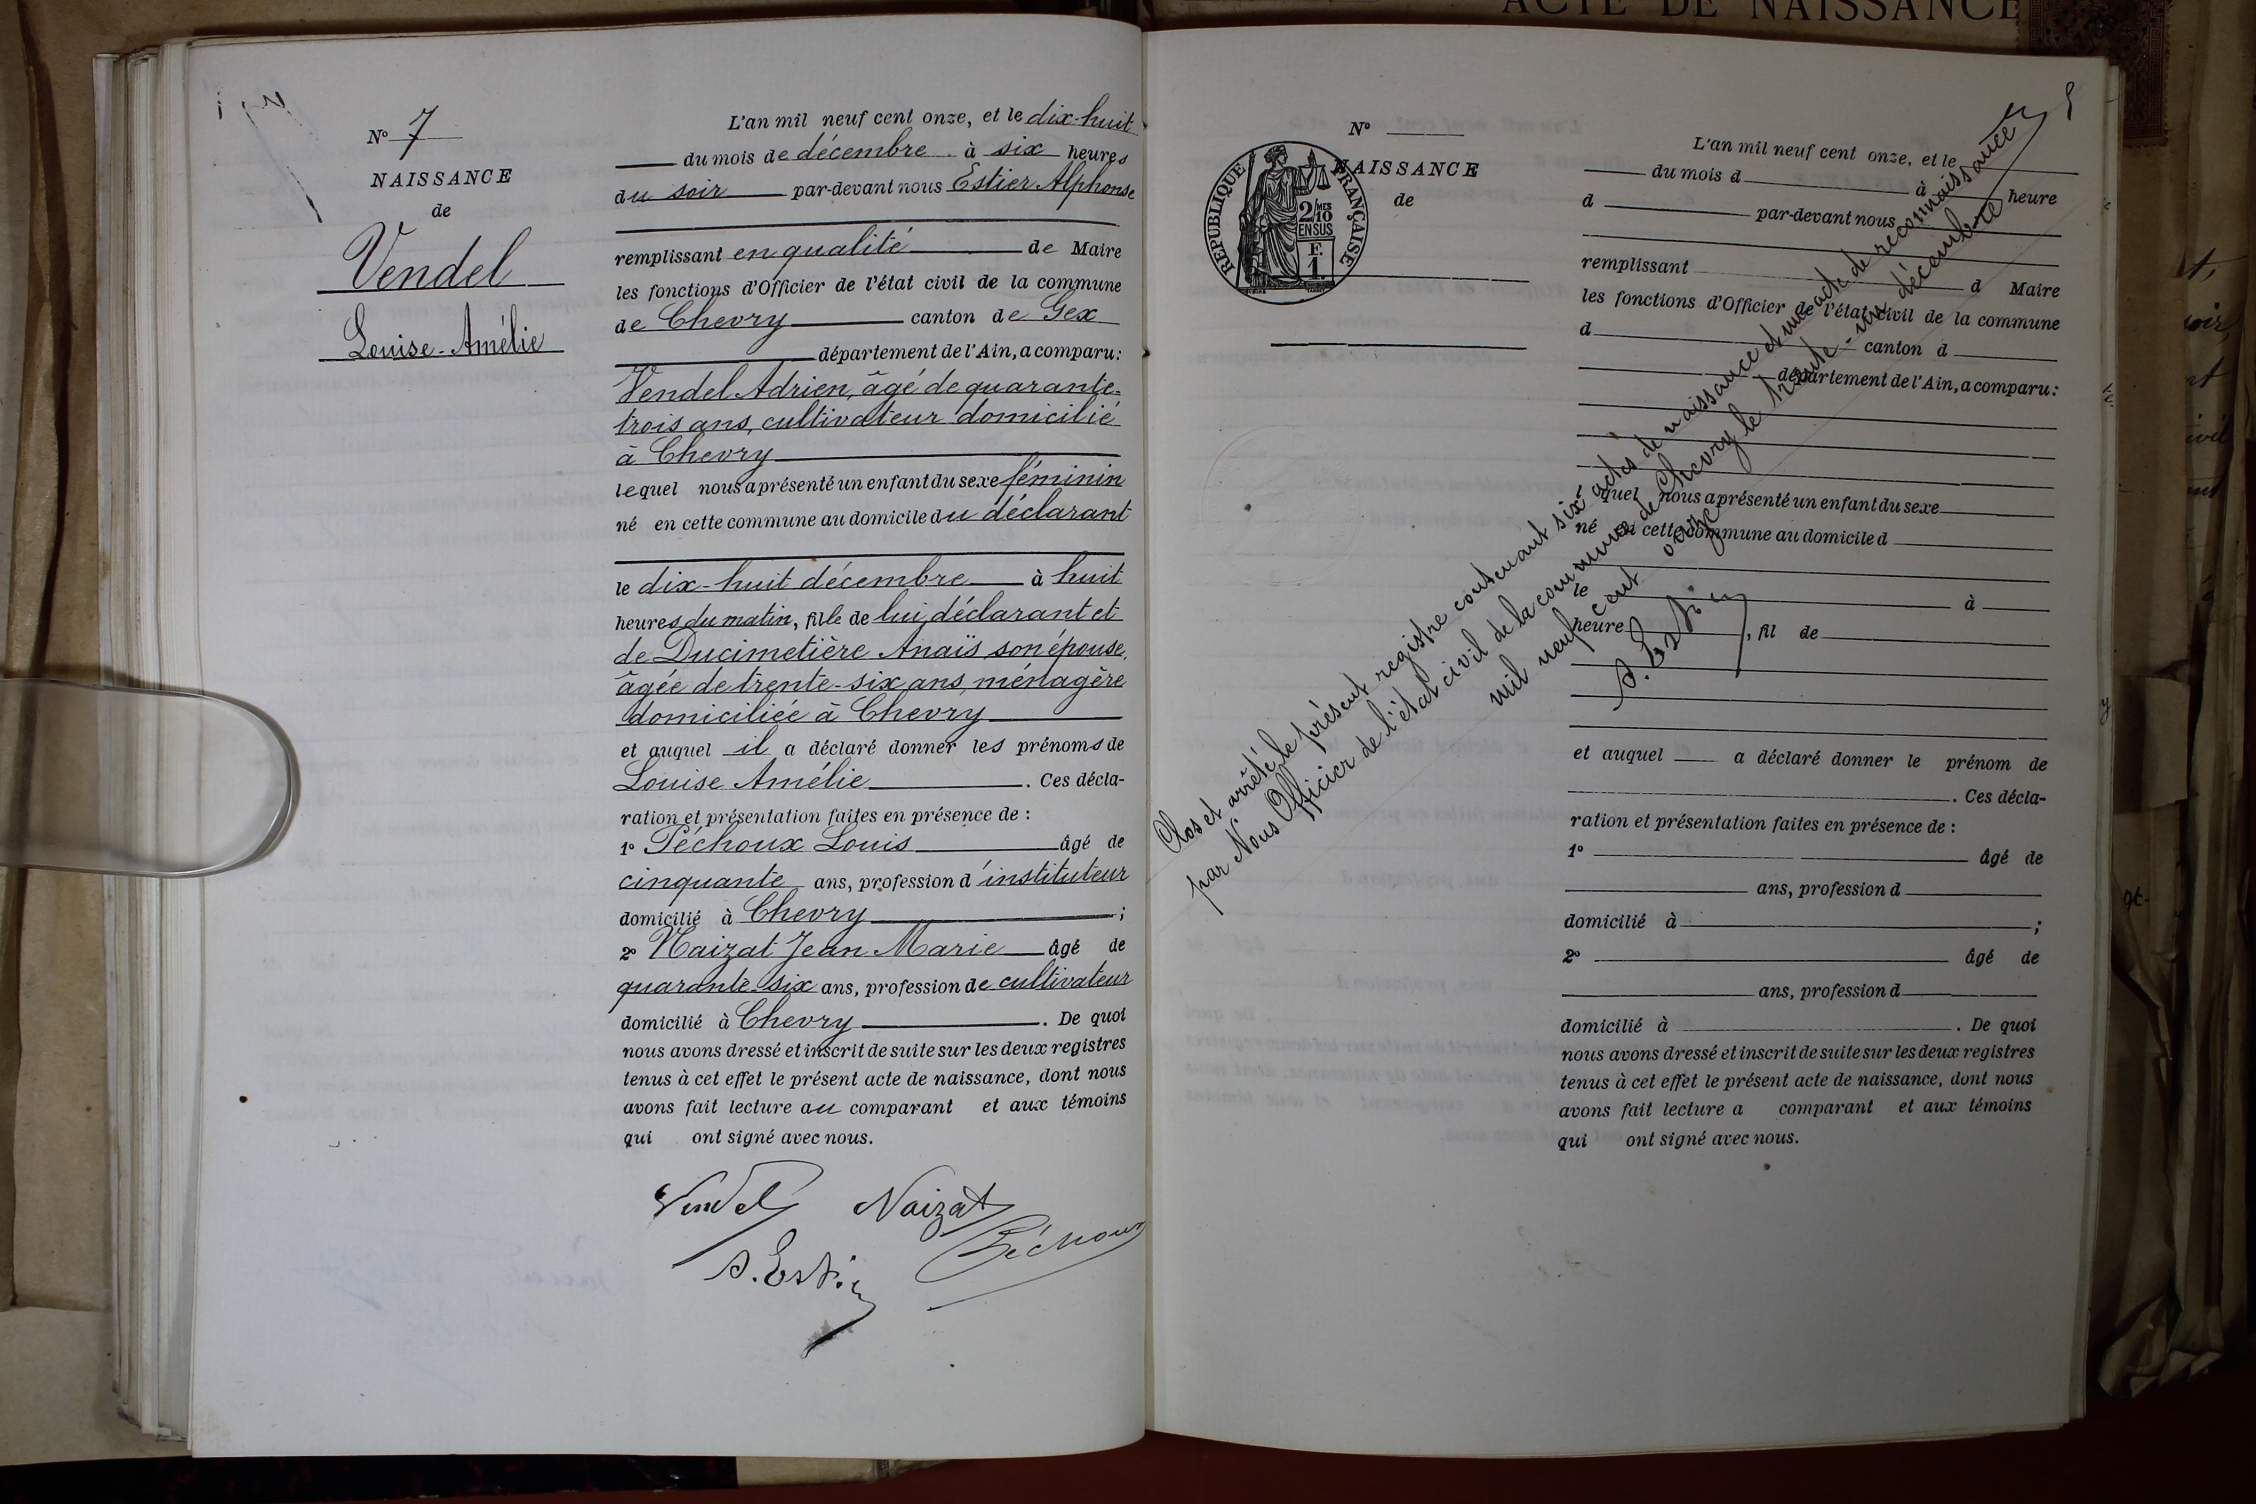 ACTE DE NAISSANCE
N° 7
NAISSANCE
de
Vendel
Louise-Amélie
L'an mil neuf cent onze, et le dix-huit
du mois de décembre à six heures
du soir par-devant nous Estier Alphonse
remplissant en qualité de Maire
les fonctions d'Officier de l'état civil de la commune
de Chevry canton de Gex
département de l'Ain, a comparu:
Vendel Adrien, âgé de quarante-
trois ans, cultivateur domicilié
à Chevry
lequel nous a présenté un enfant du sexe féminin
né en cette commune au domicile du déclarant
le dix-huit décembre à huit
heures du matin, fille de lui déclarant et
de Ducimetière Anaïs son épouse,
âgée de trente-six ans, ménagère
domiciliée à Chevry
et auquel il a déclaré donner les prénoms de
Louise Amélie. Ces décla-
ration et présentation faites en présence de :
1° Péchoux Louis âgé de
cinquante ans, profession d'instituteur
domicilié à Chevry ;
2° Naizat Jean Marie âgé de
quarante-six ans, profession de cultivateur
domicilié à Chevry. De quoi
nous avons dressé et inscrit de suite sur les deux registres
tenus à cet effet le présent acte de naissance, dont nous
avons fait lecture au comparant et aux témoins
qui ont signé avec nous.
Vendel Naizat
A. Estier Péchoux
N°
NAISSANCE
de
RÉPUBLIQUE FRANÇAISE
2/10
MES
EN SUS
F.
1.
L'an mil neuf cent onze, et le
du mois d à heure
d par-devant nous
remplissant d Maire
les fonctions d'Officier de l'état civil de la commune
d canton d
département de l'Ain, a comparu:
quel nous a présenté un enfant du sexe
né en cette commune au domicile d
le à
heure , fil de
et auquel a déclaré donner le prénom de
. Ces décla-
ration et présentation faites en présence de :
1° âgé de
ans, profession d
domicilié à ;
2° âgé de
ans, profession d
domicilié à . De quoi
nous avons dressé et inscrit de suite sur les deux registres
tenus à cet effet le présent acte de naissance, dont nous
avons fait lecture a comparant et aux témoins
qui ont signé avec nous.
Clos et arrêté le présent registre contenant six actes de naissance et un acte de reconnaissance
par Nous Officier de l'état civil de la commune de Chevry le trente-un décembre
mil neuf cent onze
A. Estier